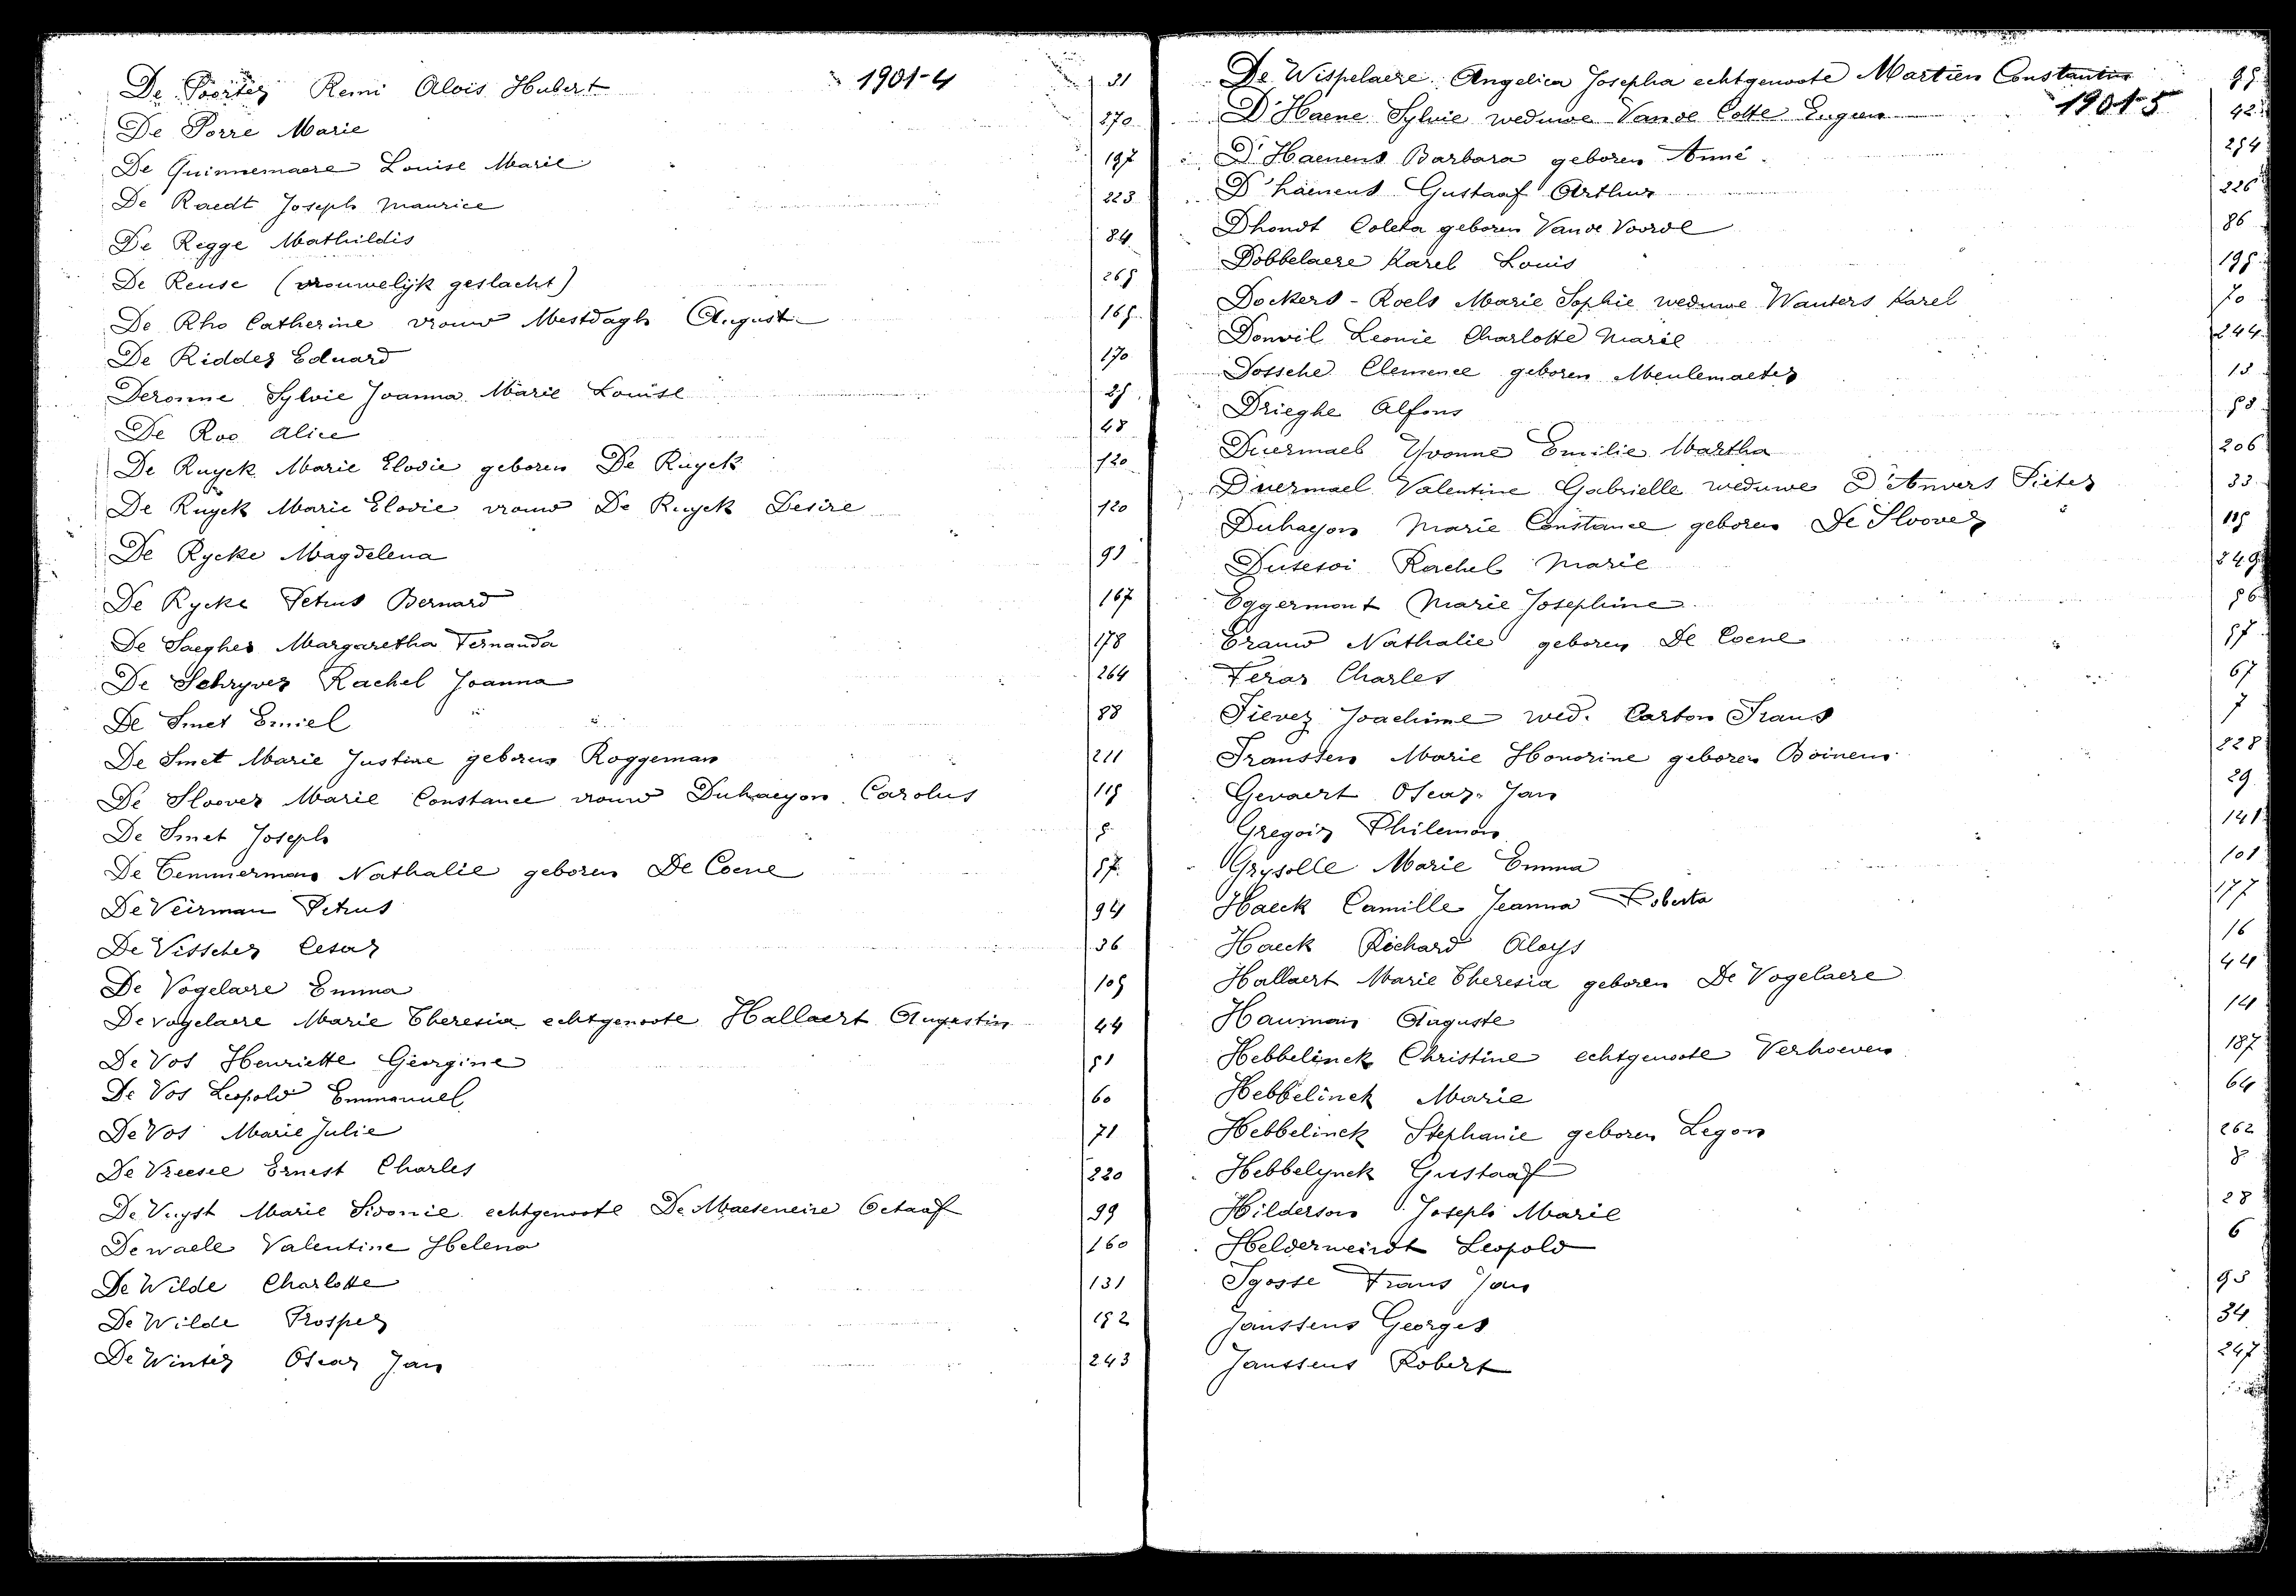 De Poorter Remi Alois Hubert 1901-4 31
De Porre Marie 270
De Guinnemaere Louise Marie 197
De Raedt Joseph Maurice 223
De Regge Mathildis 84
De Reuse (vrouwelijk geslacht) 265
De Rho Catherine vrouw Mestdagh August 165
De Ridder Eduard 170
Deronne Sylvie Joanna Marie Louise 25
De Roo Alice 48
De Ruyck Marie Elodie geboren De Ruyck 120
De Ruyck Marie Elodie vrouw De Ruyck Desire 120
De Rycke Magdelena 91
De Rycke Petrus Bernard 167
De Saegher Margaretha Fernanda 178
De Schryver Rachel Joanna 264
De Smet Emiel 88
De Smet Marie Justine geboren Roggeman 211
De Sloover Marie Constance vrouw Duhaeyon Carolus 115
De Smet Joseph 5
De Temmerman Nathalie geboren De Coene 57
De Veirman Petrus 94
De Visscher Cesar 36
De Vogelaere Emma 105
De vogelaere Marie Theresia echtgenoote Hallaert Augustin 44
De Vos Henriette Georgine 51
De Vos Leopold Emmanuel 60
De Vos Marie Julie 71
De Vreese Ernest Charles 220
De Vuyst Marie Sidonie echtgenoote De Maeseneire Octaaf 99
De waele Valentine Helena 160
De Wilde Charlotte 131
De Wilde Prosper 152
De Winter Oscar Jan 243
De Wispelaere Angelica Josepha echtgenoote Martien Constantin 95
D'Haene Sylvie weduwe Van de Cotte Eugeen 1901-5 42
D'Haenens Barbara geboren Anné 254
D'haenens Gustaaf Arthur 226
Dhondt Coleta geboren Van de Voorde 86
Dobbelaere Karel Louis 195
Dockers - Roels Marie Sophie weduwe Wauters Karel 70
Donvil Leonie Charlotte Marie 244
Dossche Clemence geboren Meulemaeter 13
Drieghe Alfons 58
Duermael Yvonne Emilie Martha 206
Duermael Valentine Gabrielle weduwe D'Anvers Pieter 33
Duhayon Marie Constance geboren De Sloover 115
Dutesoi Rachel Marie 249
Eggermont Marie Josephine 56
Erauw Nathalie geboren De Coene 57
Feras Charles 67
Fievez Joachime wed. Carton Frans 7
Franssen Marie Honorine geboren Boinem 228
Gevaert Oscar Jan 29
Gregoir Philemon 141
Grysolle Marie Emma 101
Haeck Camille Jeanna Roberta 177
Haeck Richard Aloys 16
Hallaert Marie Theresia geboren De Vogelaere 44
Hauman Auguste 14
Hebbelinck Christine echtgenoote Verhoeven 187
Hebbelinck Marie 64
Hebbelinck Stephanie geboren Legon 262
Hebbelynck Gustaaf 8
Hilderson Joseph Marie 28
Helderweirdt Leopold 6
Igosse Frans Jan 93
Janssens Georges 34
Janssens Robert 247